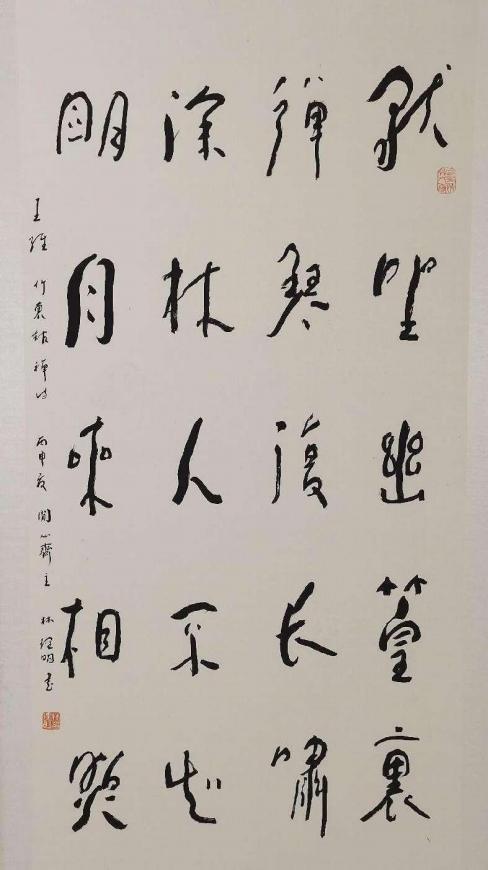 獨坐幽篁裏
彈琴復長嘯
深林人不知
明月來相照
王維 竹裏館禪詩 丙申夏 閒心齋主 林明書